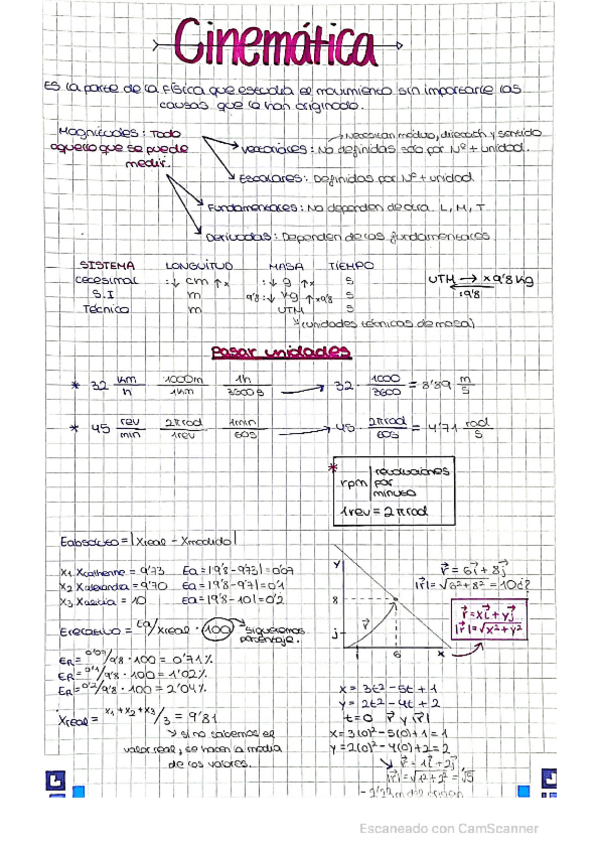 Cinemática
Es la parte de la física que estudia el movimiento sin importarle las
causas que lo han originado.
Magnitudes: Todo
aquello que se puede
medir.
→ Necesitan módulo, dirección y sentido
Vectoriales: No definidas solo por Nº + unidad.
Escalares: Definidas por Nº + unidad
Fundamentales: No dependen de otra. L, M, T
Derivadas: Dependen de las fundamentales
SISTEMA LONGUITUD MASA TIEMPO
Cegesimal :↓ cm ↑x :↓ g ↑x s
S.I m 9'8:↓ kg ↑x9'8 s
Técnico m UTM s
UTM → x9'8 kg
:9'8
(unidades técnicas de masa)
Pasar unidades
* 32 km/h 1000m/1km 1h/3500s → 32 · 1000/3600 = 8'89 m/s
* 45 rev/min 2πrad/1rev 1min/60s → 45 · 2πrad/60s = 4'71 rad/s
* rpm | revoluciones
por
minuto
1rev = 2πrad
Eabsoluto = |Xreal - Xmedido|
x1 Xcatherine = 9'73 Ea = |9'8 - 973| = 0'07
x2 Xalejandra = 9'70 Ea = |9'8 - 9'7| = 0'1
x3 = 10 Ea = |9'8 - 10| = 0'2
Erelativo = Ea/Xreal · 100 → si queremos
porcentaje.
ER = 0'07/9'8 · 100 = 0'71%
ER = 0'1/9'8 · 100 = 1'02%
ER = 0'2/9'8 · 100 = 2'04%
Xreal = x1 + x2 + x3/3 = 9'81
→ si no sabemos el
valor real, se hacen la media
de los valores.
y
8
j
r⃗
i 6 x
r⃗ = 6i⃗ + 8j⃗
|r⃗| = √6²+8² = 10
r⃗ = xi⃗ + yj⃗
|r⃗| = √x²+y²
x = 3t² - 5t + 1
y = 2t² - 4t + 2
t = 0 r⃗ y |r⃗|
x = 3(0)² - 5(0) + 1 = 1
y = 2(0)² - 4(0) + 2 = 2
r⃗ = 1i⃗ + 2j⃗
|r⃗| = √1²+2² = √5
Escaneado con CamScanner